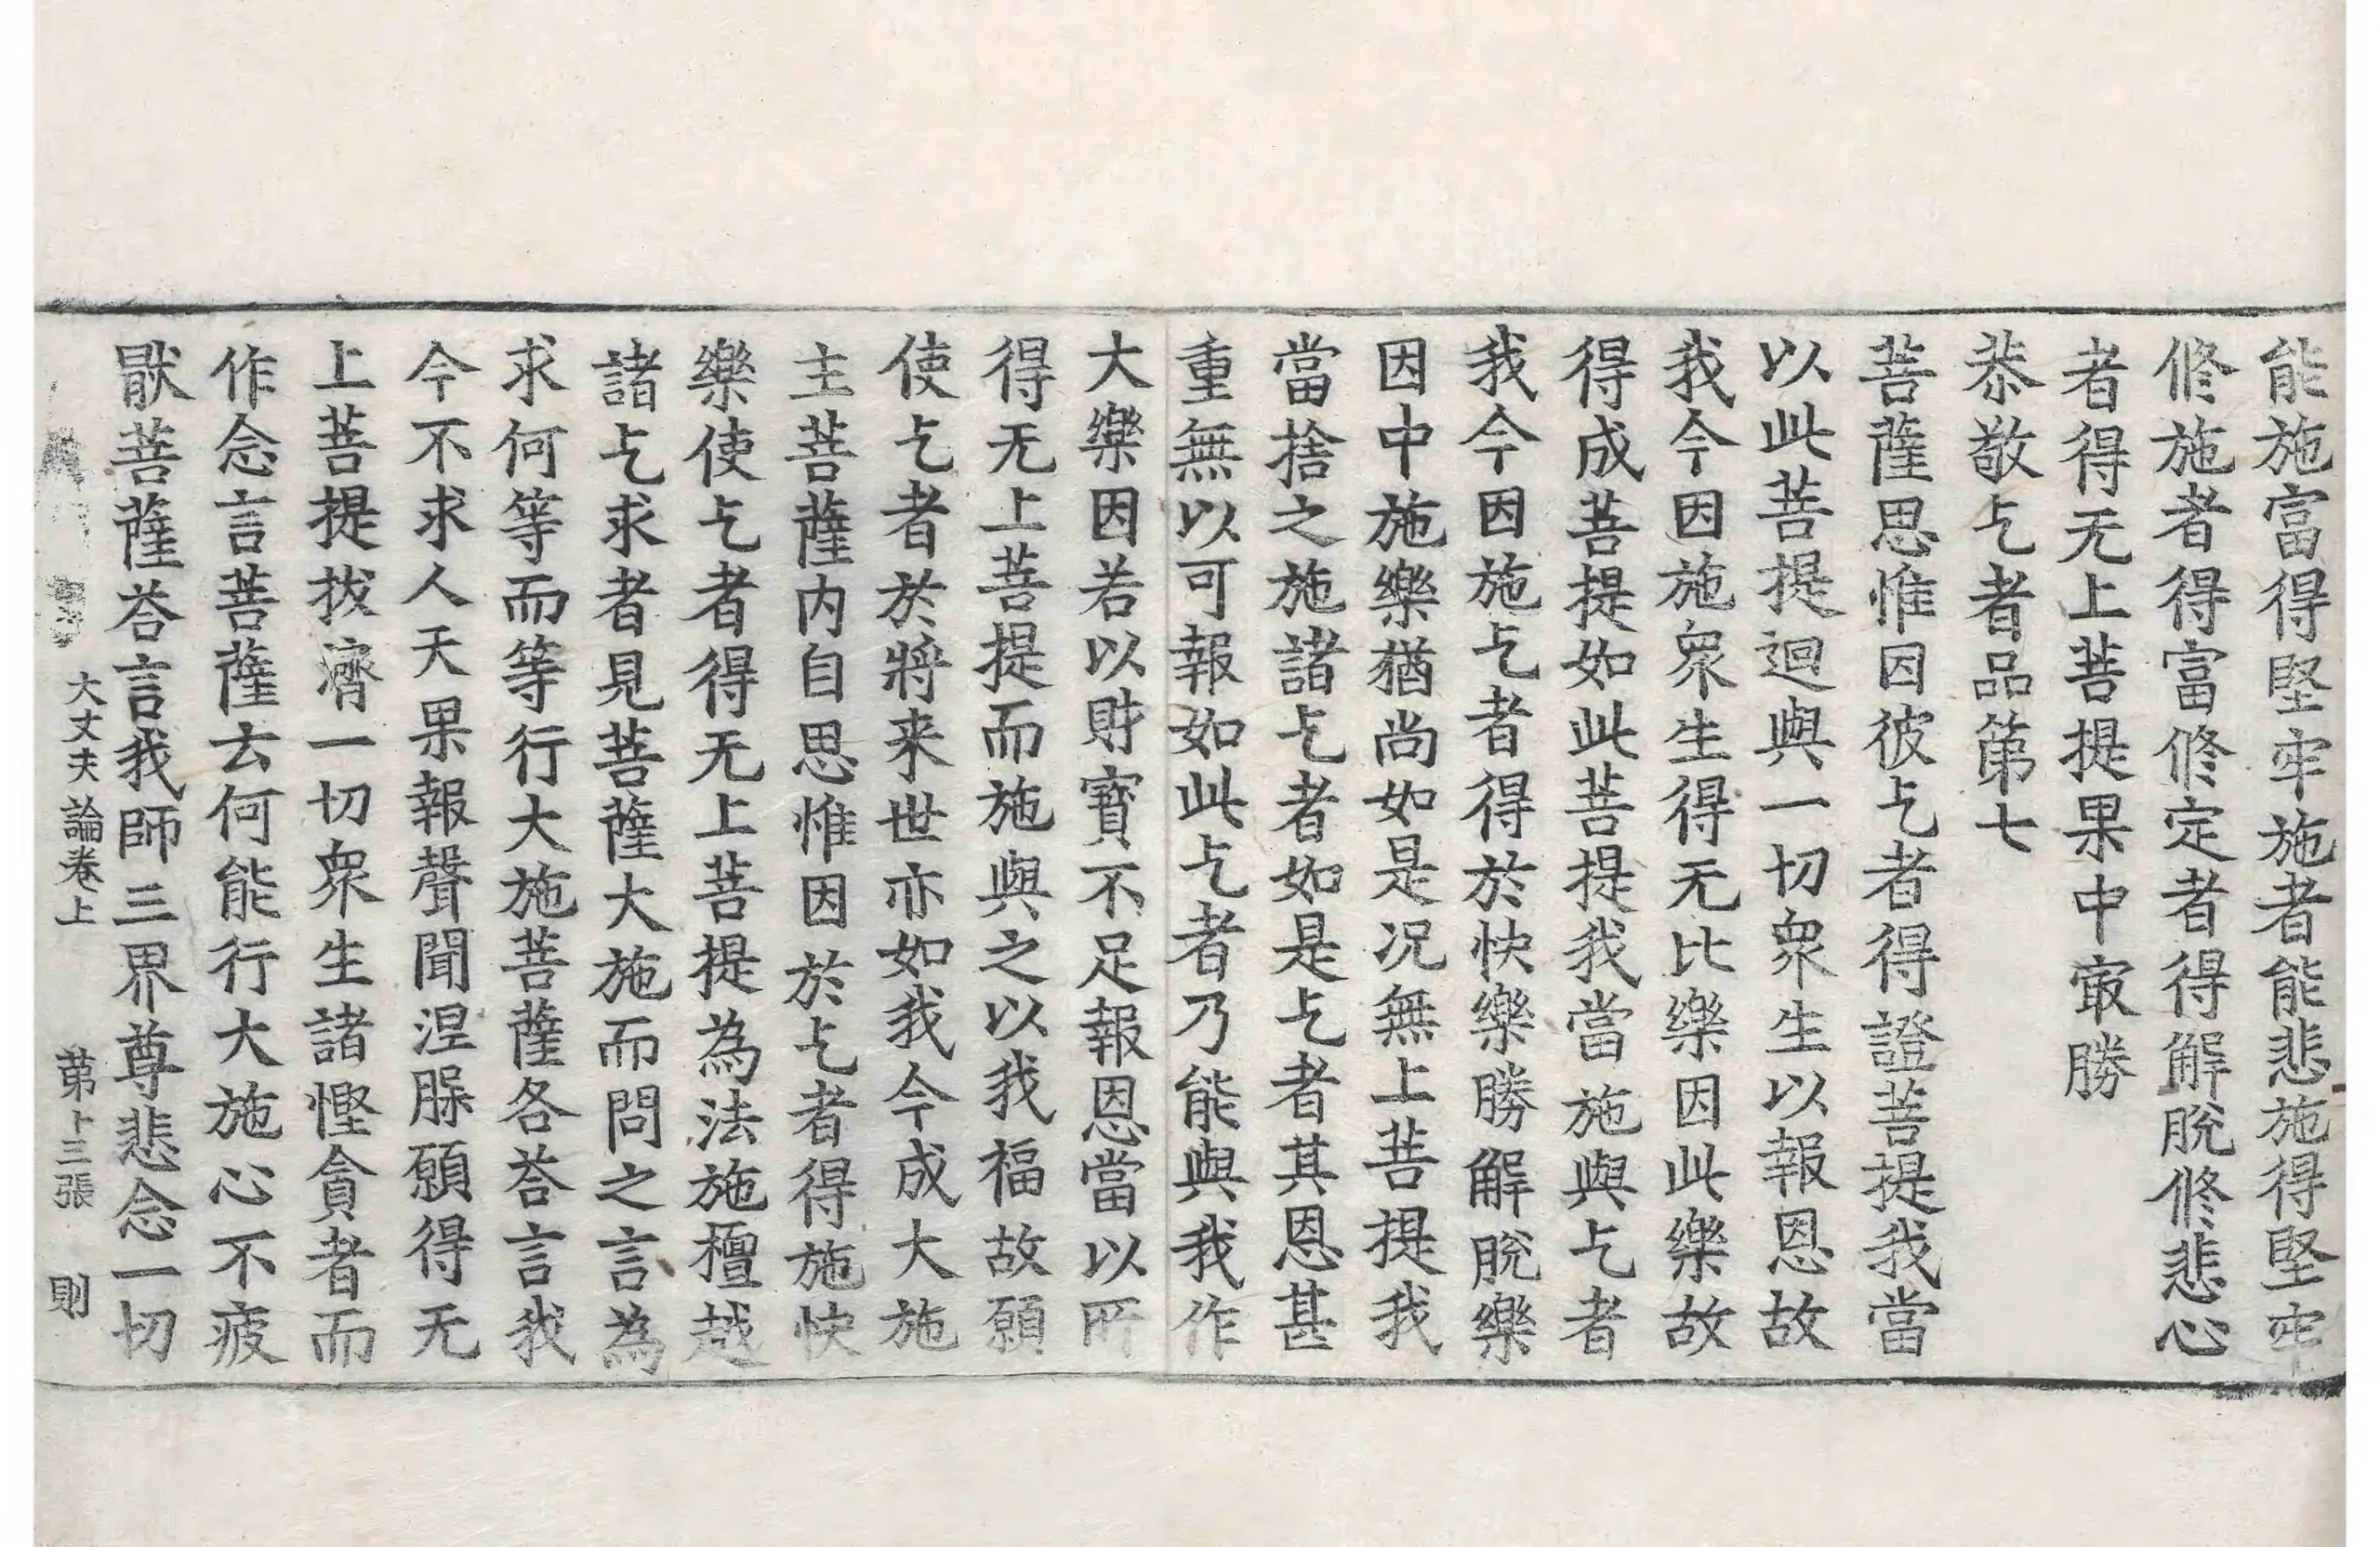 能施富得堅牢施者能悲施得堅牢
修施者得富修定者得解脫修悲心
者得无上菩提果中㝡勝
恭敬乞者品第七
菩薩思惟因彼乞者得證菩提我當
以此菩提迴與一切衆生以報恩故
我今因施衆生得无比樂因此樂故
得成菩提如此菩提我當施與乞者
我今因施乞者得於快樂勝解脫樂
因中施樂猶尚如是况無上菩提我
當捨之施諸乞者如是乞者其恩甚
重無以可報如此乞者乃能與我作
大樂因若以財寶不足報恩當以所
得无上菩提而施與之以我福故願
使乞者於將来世亦如我今成大施
主菩薩内自思惟因於乞者得施快
樂使乞者得无上菩提為法施檀越
諸乞求者見菩薩大施而問之言為
求何等而等行大施菩薩各荅言我
今不求人天果報聲聞涅槃願得无
上菩提拔濟一切衆生諸慳貪者而
作念言菩薩云何能行大施心不疲
猒菩薩荅言我師三界尊悲念一切
大丈夫論卷上 第十三張 則